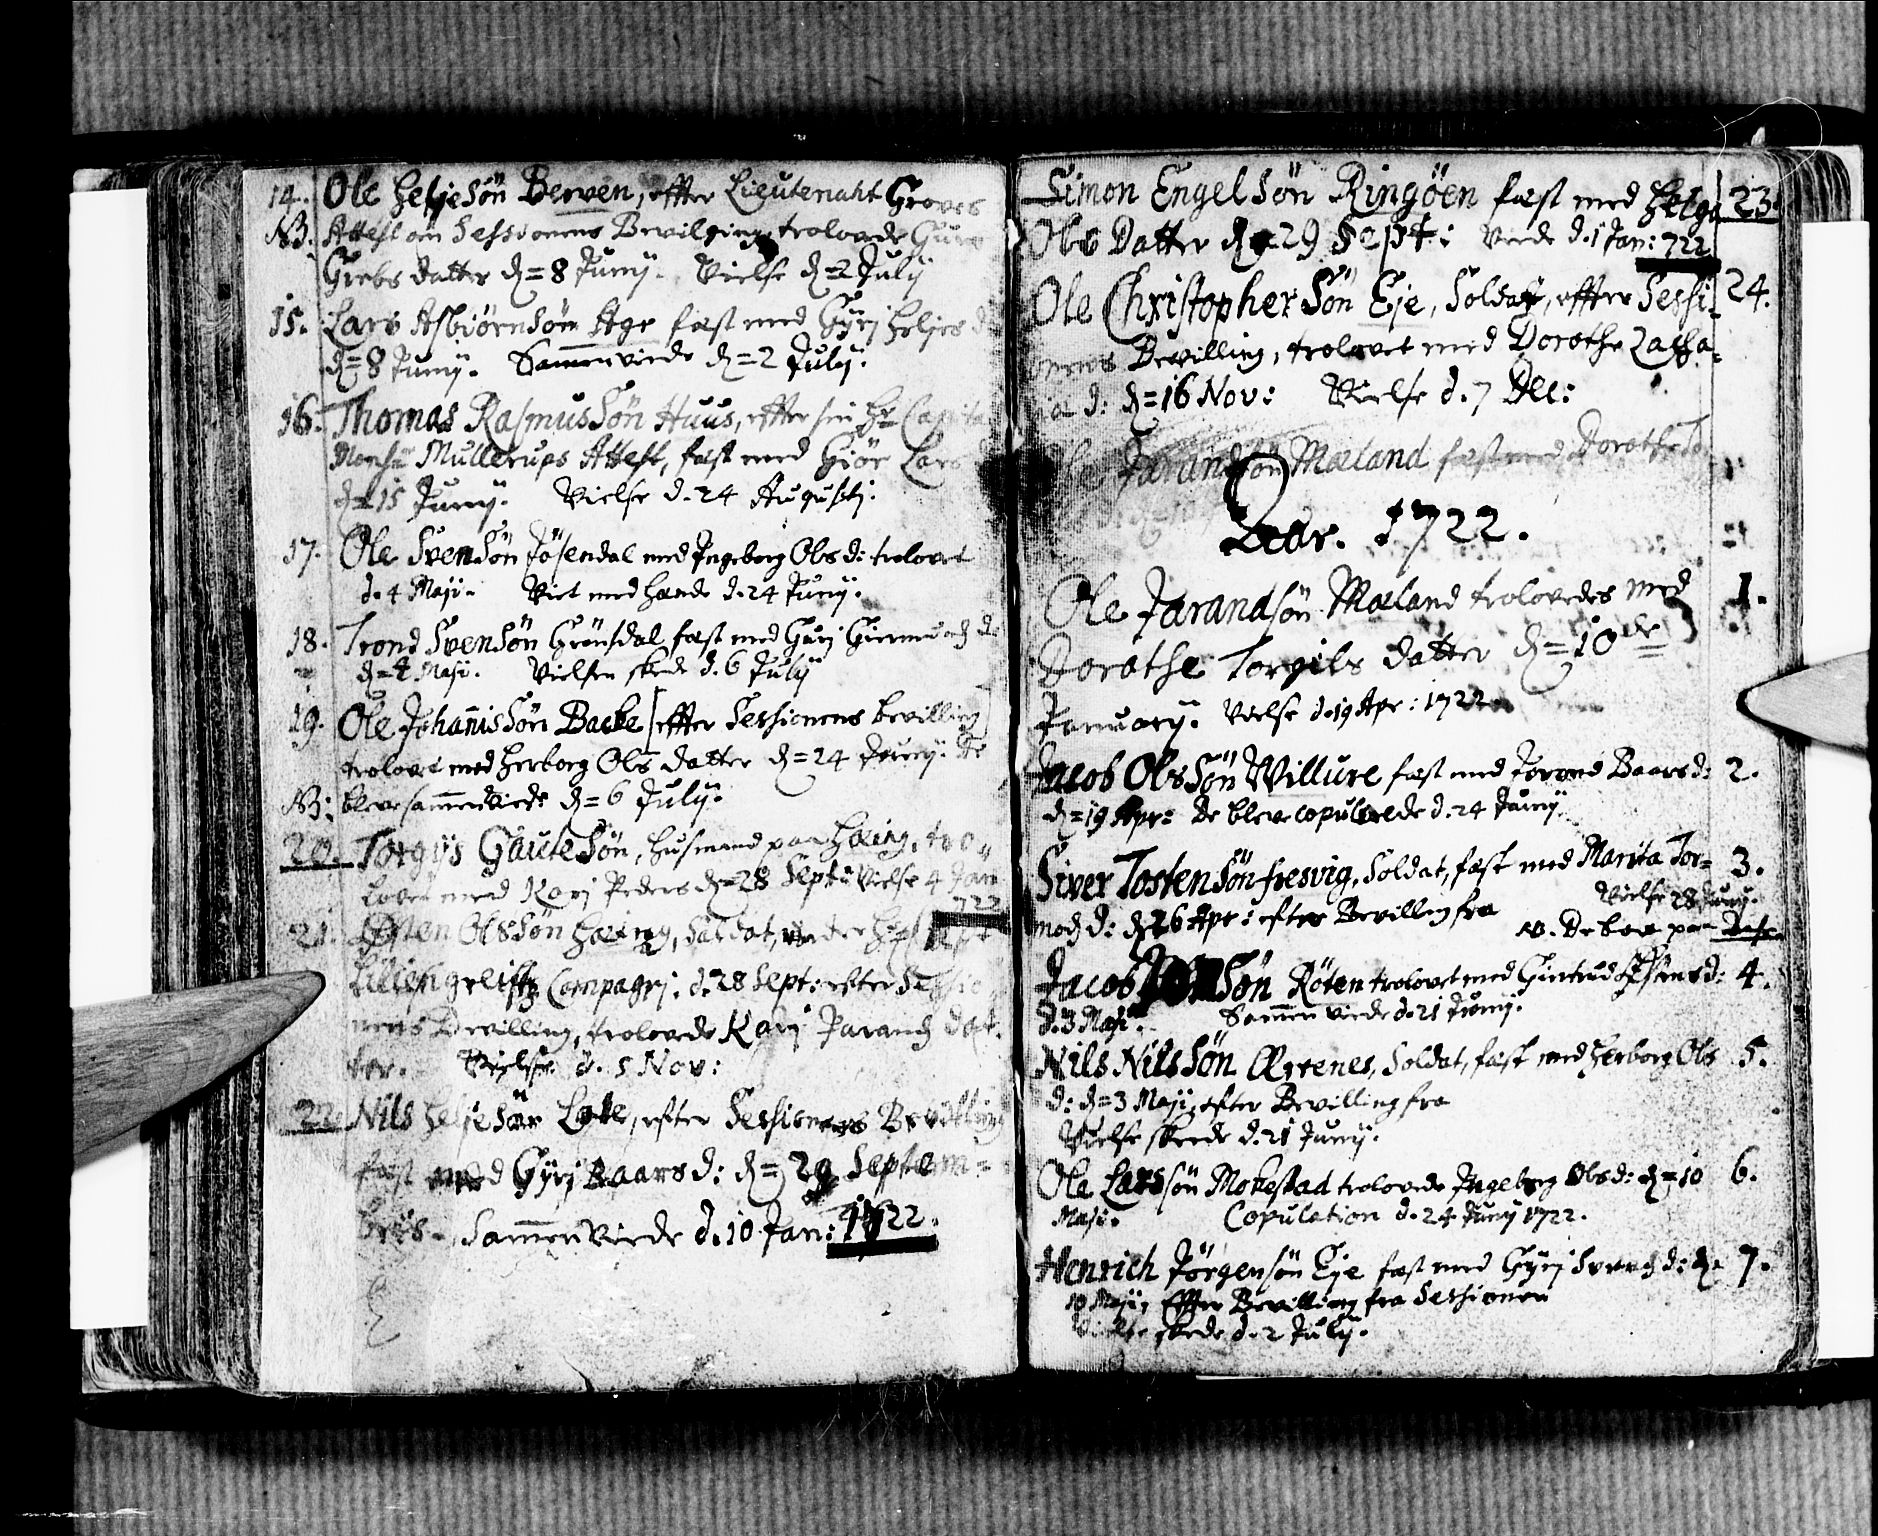 14. Ole HeljeSön Berven, effter Lieutenant Groves
NB. Attest om Sessionens Bevilging, trolovede Guro
Grebs datter d = 8 Junij. Vielse d = 2 Julij
15. Lars AsbiörnSön Age fæst med Gyrj Heljes d
d = 8 Junij. Sammenviede d = 2 Julij.
16. Thomas RasmusSön Huus, effter sin Hr Capita
Mullerups Attest, fæst med Giör Lars
d = 15 Junij. Vielse d. 24 Augustj.
17. Ole SvenSön Jösendal med Ingeborg Ols d: trolovet
d. 4 Maji. Viet med hende d. 24 Junij.
18. Trond SvenSön Grönsdal fæst med Gurj d
d = 4 Maji. Vielsen skede d. 6 Julij
19. Ole JohañisSön Backe [effter Sessionens bevilling]
trolovet med Herborg Ols datter d = 24 Junij. de
NB: bleve sam̄enviede d = 6 Julij.
20. Torgijs GauteSön, Husmand paa Hæing, tro=
lovet med Karj Peders d = 28 Sept: Vielse 4 Jan
722
21. OlsSön Hæing, Soldat, under
Compagnj. d. 28 Sept: efter Sessio
nens Bevilling, trolovede Karj Jarand dat
ter. Vielse d. 5 Nov:
22. Nils HeljeSön Lote, efter Sessionens Bevilling
fæst med Gyrj Baars d: d = 29 Septem=
bris. Sam̄enviede d. 10 Jan: 1722.
Simon EngelSön Ringöen fæst med Helga 23.
Ols Datter d = 29 Sept: Viede d. 1 Jan: 722
Ole ChristopherSön Eje, Soldat, effter Sessi= 24.
onens Bevilling, trolovet med Dorothe Zacha=
ria d: d = 16 Nov: Vielse d. 7 Dec:
Ole JarandSön Mæland fæst med Dorothe To
Aar. 1722.
Ole Jarandsön Mæland trolovedes med 1.
Dorothe Torgils datter d = 10de
Januarij. Vielse d. 19 Apr: 1722
Jacob OlsSön Willure fæst med Torond Baars d: 2.
d = 19 Apr: De bleve copulerede d. 24 Junij
Siver TostenSön fresvig, Soldat, fæst med Marita Tor= 3.
mod d: d 26 Apr: efter Bevilling fra Vielse 28 Junij.
NB. De boe paa
Jacob Sön Röten trolovet med Giertrud d: 4.
d. 3 Maji. Sam̄enviede d. 21 Junij.
Nils NilsSön Ærrenes, Soldat, fæst med Herborg Ols 5.
d: d = 3 Maji, efter Bevilling fra
Vielse skeede d. 21 Junij.
Ole Larssön Mokestad trolovede Ingeborg Ols d: d = 10 6.
Maji. Copulation d. 24 Junij 1722.
Henrich Jörgensön Eje fæst med Gyrj Svend d: d. 7.
10 Maji, Effter Bevilling fra Sessionen
Vielse skede d. 2 Julij.